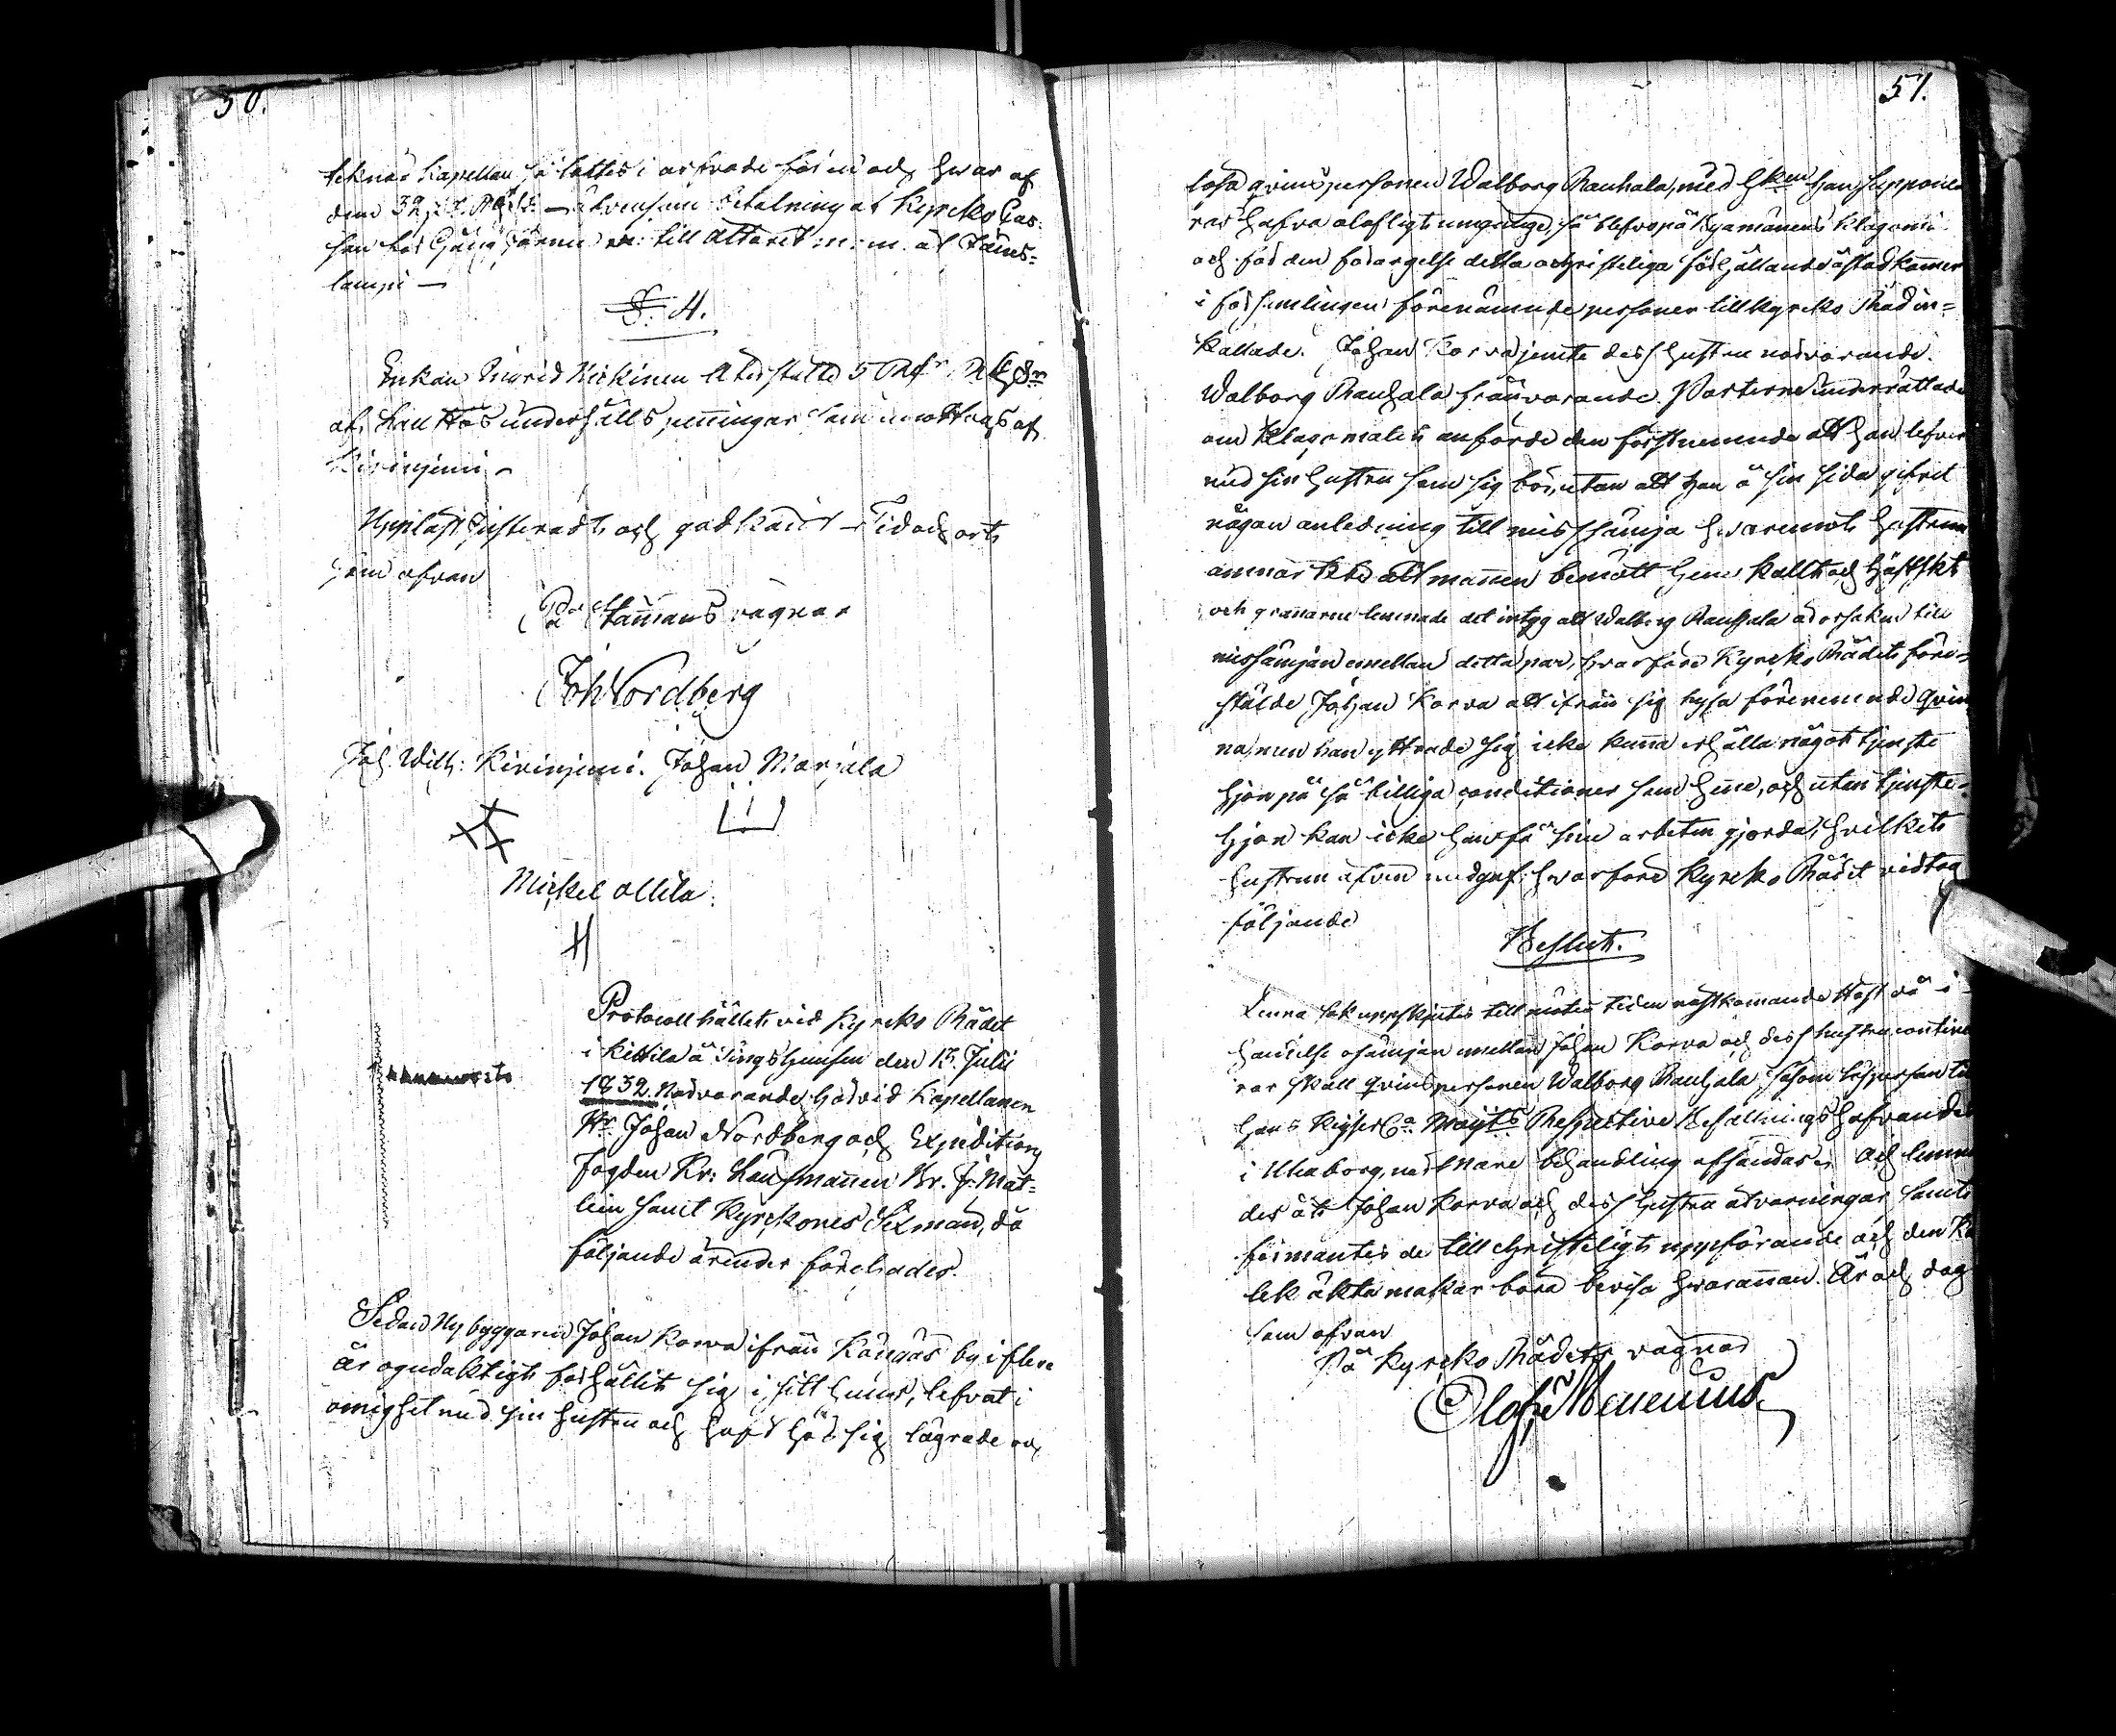 50.
tecknad Kapellan så lottes i arfvode för en och hvar af
dem 32 — äfvensom betalning af Kyrko Cas-
san för till Altaret m: m. åt Jäms-
lampi —
§. 4.
Enkan Ingrid Nickinen återstälte 5
af Lauttos underhålls penningar som emottogs af
Kiviniemi —
Uppläst, Justeradt och godkändt — Tid och ort
som ofvan
På Stämmans vägnar
Joh Nordberg
Joh. Wilh: Kiviniemi. Johan Marjala
Mickel Ollila.
Protocoll hållet vid Kyrcko Rådet
i Kittila å Tingshuusen den 15 Julii
1832. Närvarande härvid Kapellanen
Hr Johan Nordberg och Expeditions
Fogden Kr: Länsmannen Hr. J. Mat-
lein samt Kyrckones Sexmän, då
följande ärender förehades.
Sedan Nybyggaren Johan Korva ifrån Kängäs by i flere
år ogudaktigt förhållit sig i sitt huus, lefvat i
oenighet med sin hustru och haft hos sig lägrade och
51.
lösa qvinspersonen Walborg Rauhala, med hken han suppone-
ras hafva olofligt umgänge, så blefvo på Byamännens klagomål
och för den förargelse detta ochristeliga förhållande åstadkommer
i församlingen förenämnde personer till Kyrcko Råd in-
kallade. Johan Korva jemte dess hustru närvarande.
Walborg Rauhala frånvarande. Parterne underrättade
om klagomålet anförde den förstnemnde att han lefver
med sin hustru som sig bör, utan att han å sin sida gifvit
någon anledning till misssämja hvaremot hustrun
anmärkte att mannen bemött henne kallt och häftskt
och grannarne lemnade det intyg att Walborg Rauhala är orsaken till
missämjan emellan detta par, hvarföre Kyrcko Rådet före-
stälde Johan Korva att ifrån sig hysa förenemnde qvin-
na, men han yttrade sig icke kunna erhålla något tjenste
hjon på så billiga conditioner som henne, och utan tjenste-
hjon kan icke han få sina arbeten gjorda, hvilket
hustrun äfven medgef: hvarföre Kyrcko Rådet vidtog
följande
Beslut.
Denna sak uppskjutes till möten tiden nästkommande Höst då i
händelse osämjan emellan Johan Korva och dess hustru continue-
rar skall qvinspersonen Walborg Rauhala såsom lösperson till
Hans Kejserl Majts Respective Befallningshafvande
i Uleaborg, närmare behandling afsändas, och lemna-
des åt Johan Korva och dess hustru åtvarningar samt
förmantes de till christeligt uppförande och den Kär-
lek äkta makar böra bevisa hvarannan. År och dag
som ofvan
På Kyrcko Rådets vägnar
Olof Menenius